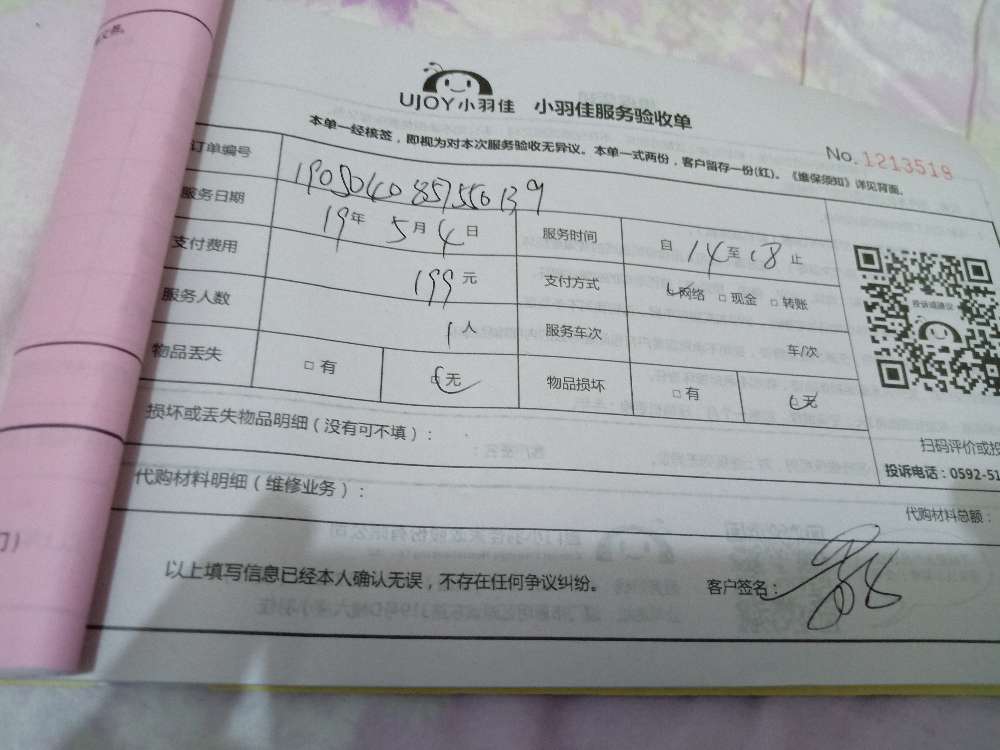 UJOY小羽佳 小羽佳服务验收单
本单一经核签，即视为对本次服务验收无异议。本单一式两份，客户留存一份(红)。《维保须知》详见背面。
No.1213519
订单编号
服务日期 19年5月4日 服务时间 自14至18止
支付费用 199元 支付方式 网络 现金 转账
服务人数 1人 服务车次 车/次
物品丢失 有 无 物品损坏 有 无
投诉或建议
扫码评价或投
投诉电话：0592-51
损坏或丢失物品明细（没有可不填）：
代购材料明细（维修业务）：
代购材料总额：
以上填写信息已经本人确认无误，不存在任何争议纠纷。 客户签名：